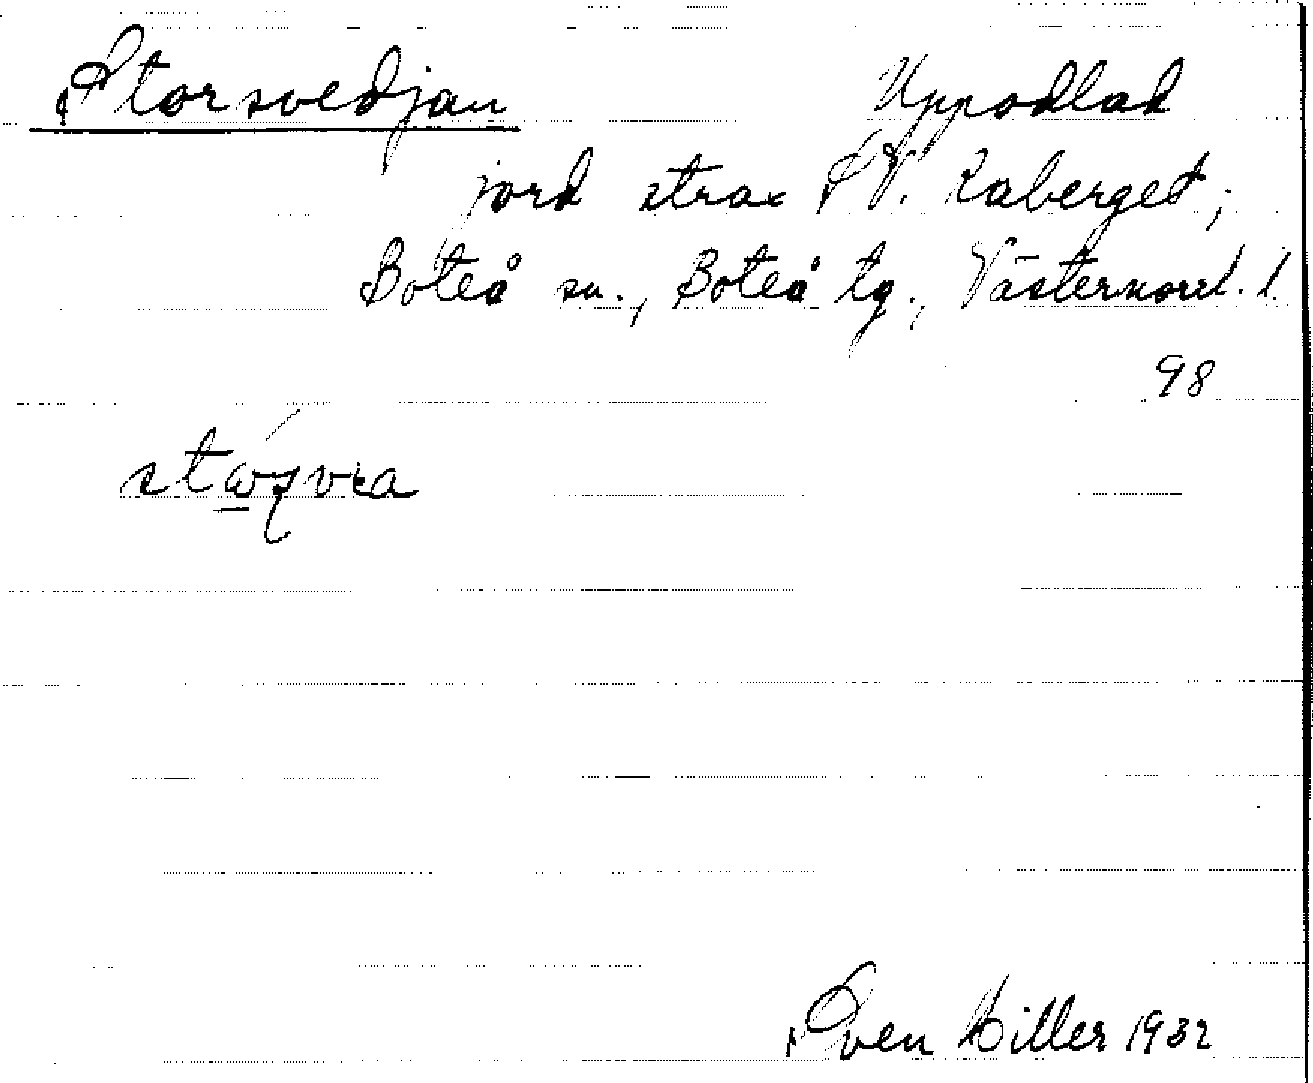 Storsvedjan Uppodlad
jord strax SV. Kaberget;
Boteå sn., Boteå tg., Västernorrl. l.
98
Sven Hiller 1932